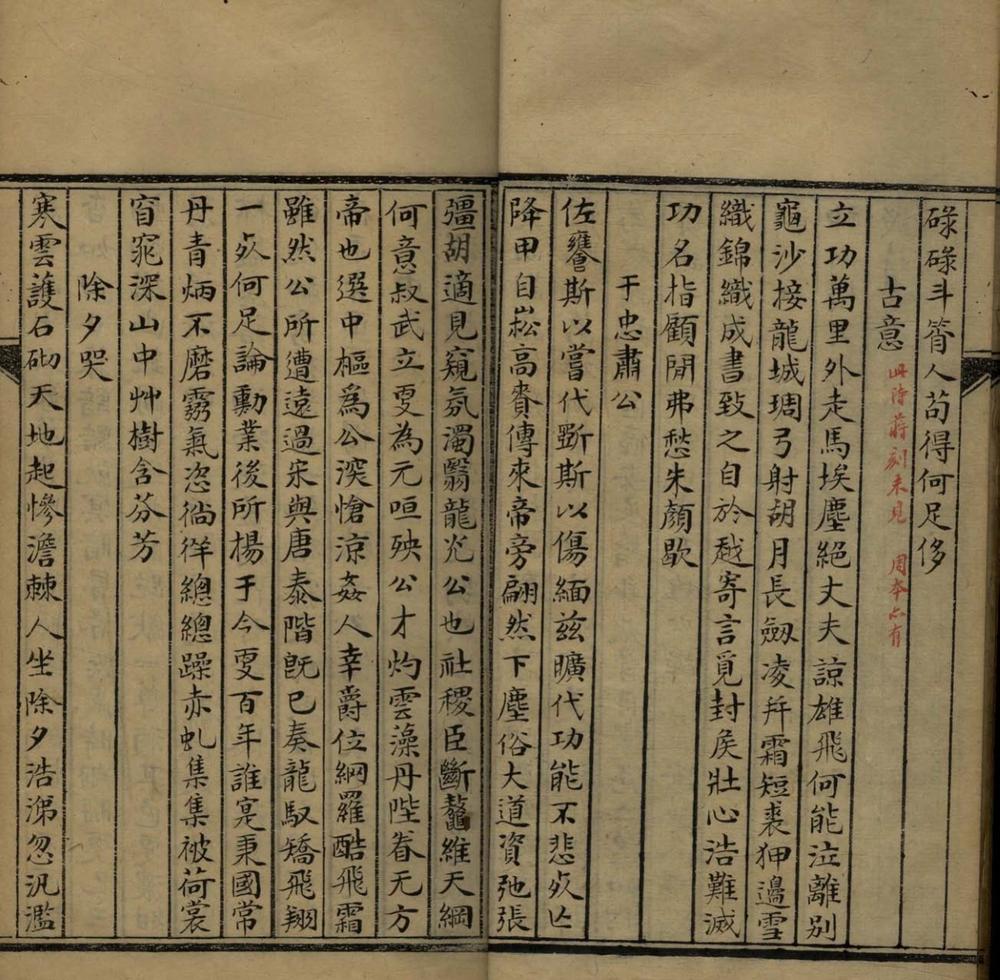 碌碌斗筲人苟得何足侈
古意 此诗蒋刻未見 周本亦有
立功萬里外走馬埃塵絕丈夫諒雄飛何能泣離別
龜沙接龍城琱弓射胡月長劒凌幷霜短裘狎邊雪
織錦織成書致之自於越寄言覓封矦壯心浩難滅
功名指顧閒弗愁朱顏歇
于忠肅公
佐饔斯以嘗代斲斯以傷緬兹曠代功能不悲㱙亾
降甲自崧高賚傳來帝旁翩然下塵俗大道資弛張
彊胡適見窺氛濁翳龍炗公也社稷臣斷鼇維天綱
何意叔武立叓為元咺殃公才灼雲藻丹陛眷无方
帝也選中樞爲公㴱愴涼姦人幸爵位綱羅酷飛霜
雖然公所遭遠過宋與唐泰階旣已奏龍馭矯飛翔
一㱙何足論勳業後所揚于今叓百年誰寔秉國常
丹青炳不磨霧氣恣徜徉總總躁赤虬集集被荷裳
窅窕深山中艸樹含芬芳
除夕哭
寒雲護石砌天地起慘澹棘人坐除夕浩涕忽汎濫